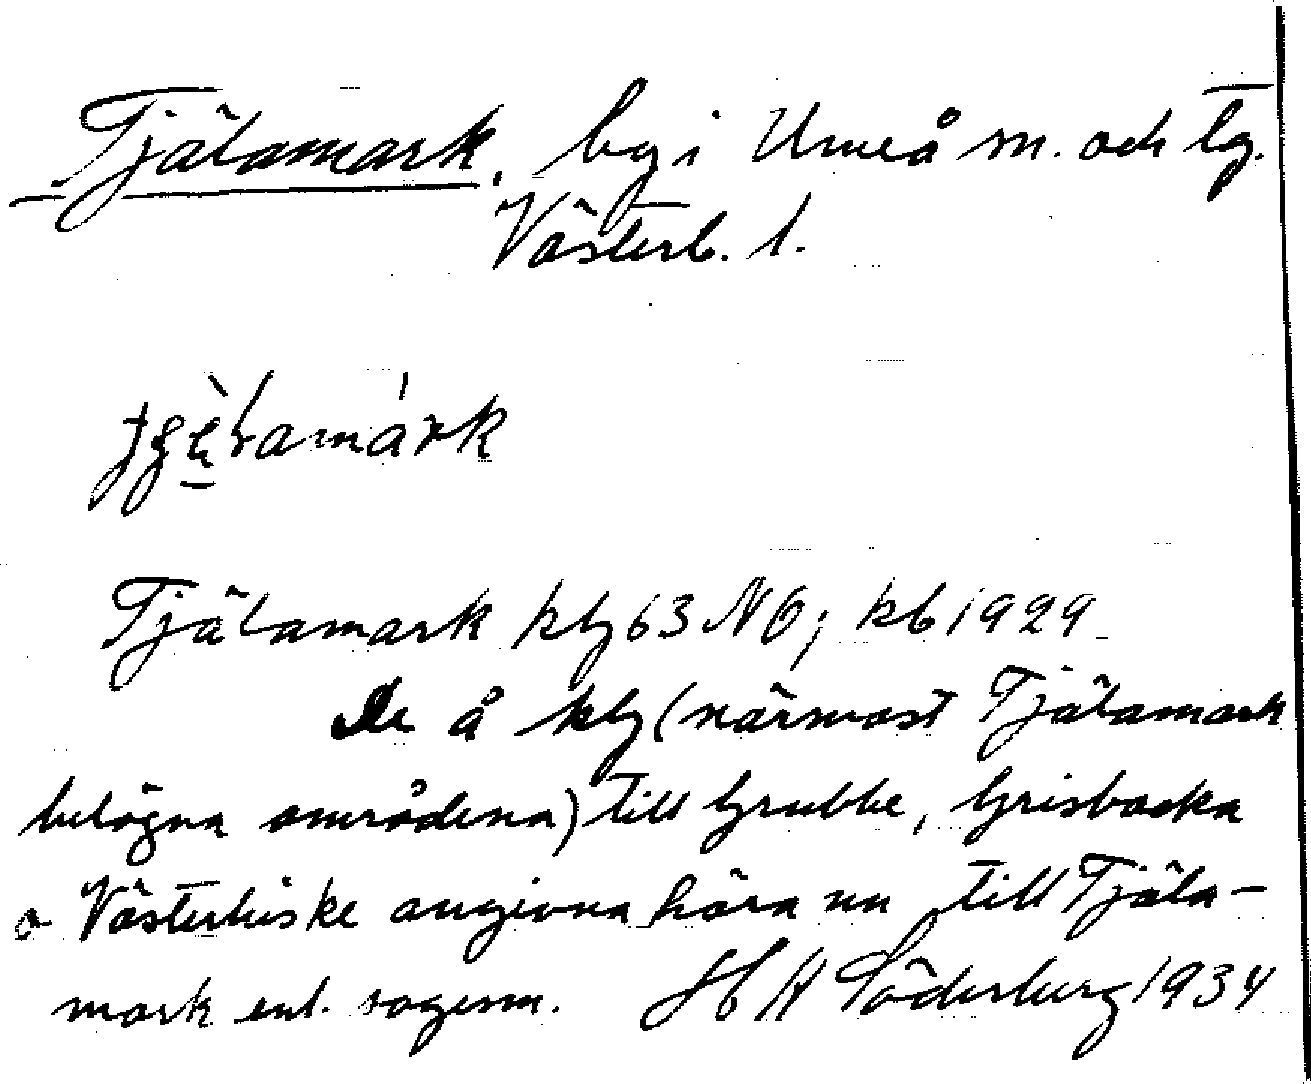 Tjälamark, by i Umeå sn. och tg.
Västerb. l.
Tjälamark kbl 63 NO; kb 1929
De å kbl (närmast Tjälamark
belägna områdena) till Grubbe, Grisbacka
o Västerhiske angivna höra nu till Tjäla-
mark enl. sagesm. H A Söderberg 1934